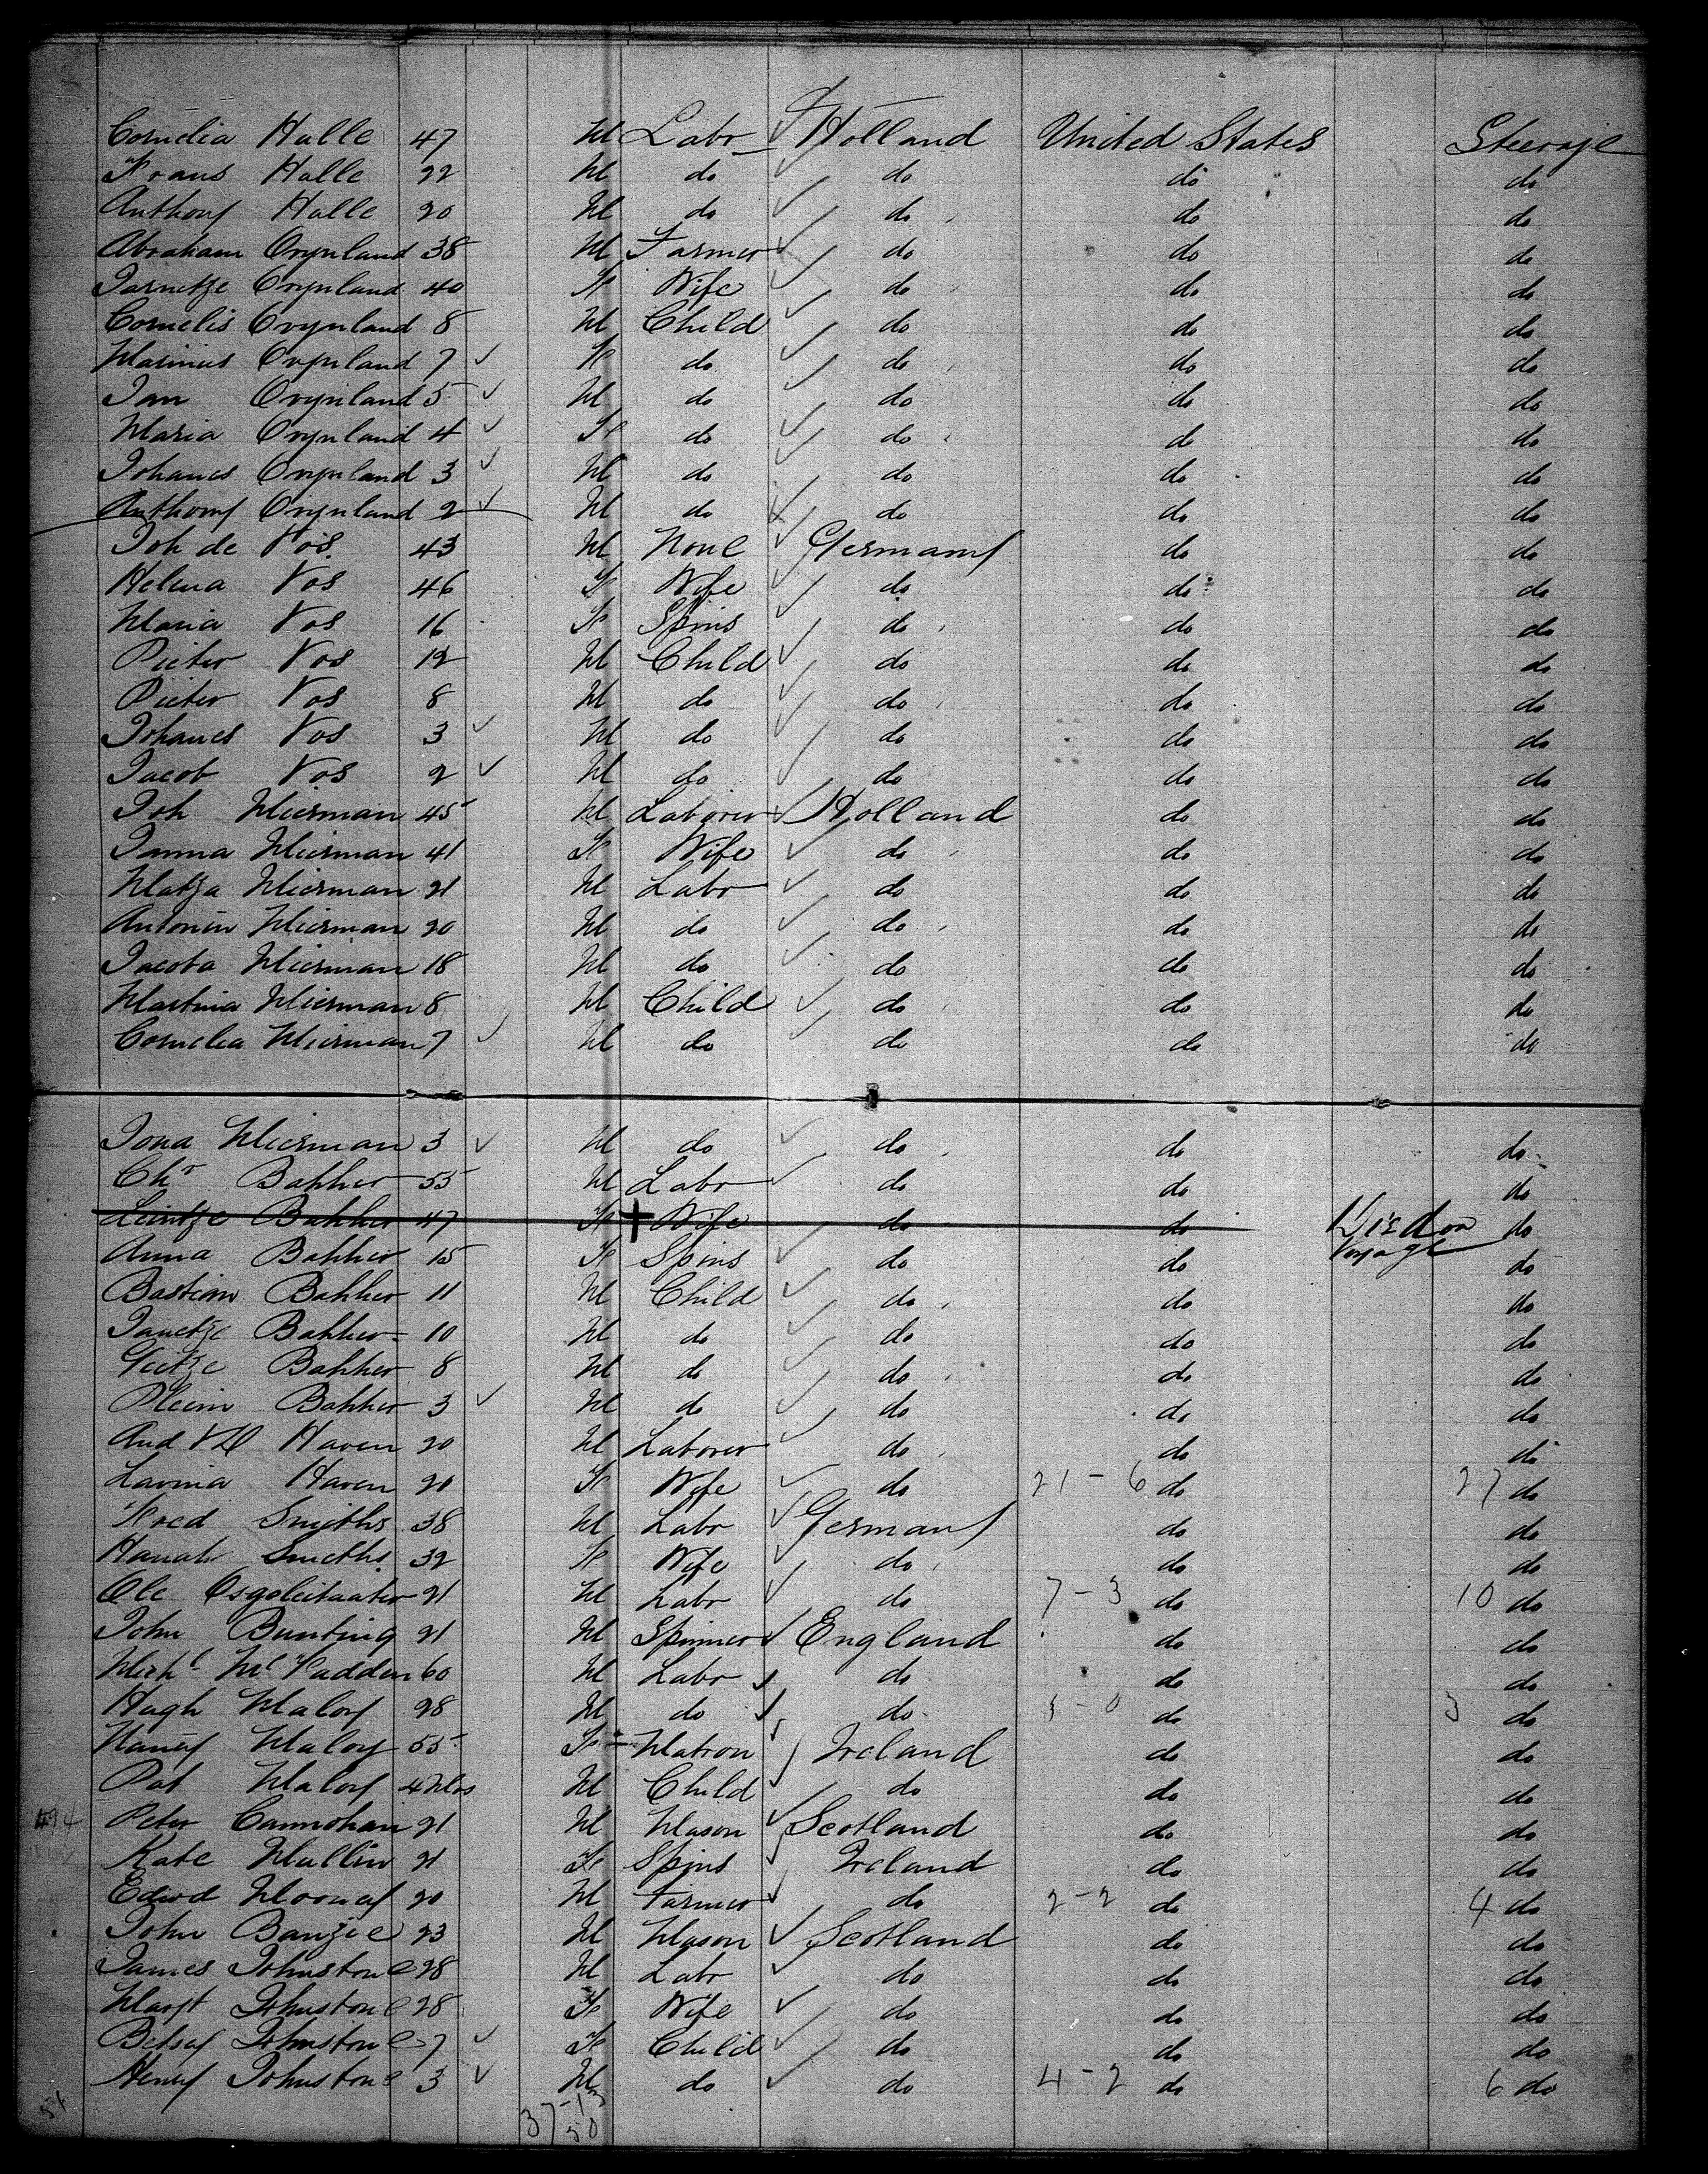 Cornelia Halle 47 M Labr Holland United States Steerage
Frans Halle 22 M do do do do
Anthony Halle 20 M do do do do
Abraham Ovynland 38 M Farmer do do do
Jarnetze Ovynland 40 F Wife do do do
Cornelis Ovynland 8 M Child do do do
Marinus Ovynland 7 F do do do do
Jan Ovynland 5 M do do do do
Maria Ovynland 4 F do do do do
Johanes Ovynland 3 M do do do do
Anthony Ovynland 2 M do do do do
Joh de Vos 43 M None Germany do do
Helena Vos 46 F Wife do do do
Maria Vos 16 F Spins do do do
Pieter Vos 12 M Child do do do
Pieter Vos 8 M do do do do
Johanes Vos 3 M do do do do
Jacob Vos 2 M do do do do
Joh Mierman 45 M Laborer Holland do do
Janna Mierman 41 F Wife do do do
Matza Mierman 21 M Labr do do do
Antonin Mierman 20 M do do do do
Jacoba Mierman 18 M do do do do
Martina Mierman 8 M Child do do do
Cornelia Mierman 7 M do do do do
Jona Mierman 3 M do do do do
Chr Bakker 55 M Labr do do do
Leintze Bakker 47 F Wife do do Died on do
Voyage
Anna Bakker 15 F Spins do do do
Bastian Bakker 11 M Child do do do
Janetze Bakker 10 M do do do do
Geitze Bakker 8 M do do do do
Pleun Bakker 3 M do do do do
And Haven 20 M Laborer do do do
Lavina Haven 20 F Wife do 21-6 do 27 do
Fred Smeths 38 M Labr Germany do do
Hanah Smeths 32 F Wife do do do
Ole 21 M Labr do 7-3 do 10 do
John Bunting 21 M Spinner England do do
Michl McFadden 60 M Labr do do do
Hugh Maloy 28 M do do 3-0 do 3 do
Nancy Maloy 55 F Matron Ireland do do
Pat Maloy 4 Mos M Child do do do
494 Peter Cannohan 21 M Mason Scotland do do
Kate Mullin 21 F Spins Ireland do do
Edwd Mooney 20 M Farmer do 2-2 do 4 do
John Banzie 23 M Mason Scotland do do
James Johnstone 28 M Labr do do do
Margt Johnstone 28 F Wife do do do
Betsy Johnstone 7 F Child do do do
Henry Johnstone 3 M do do 4-2 do 6 do
51 37-13
50